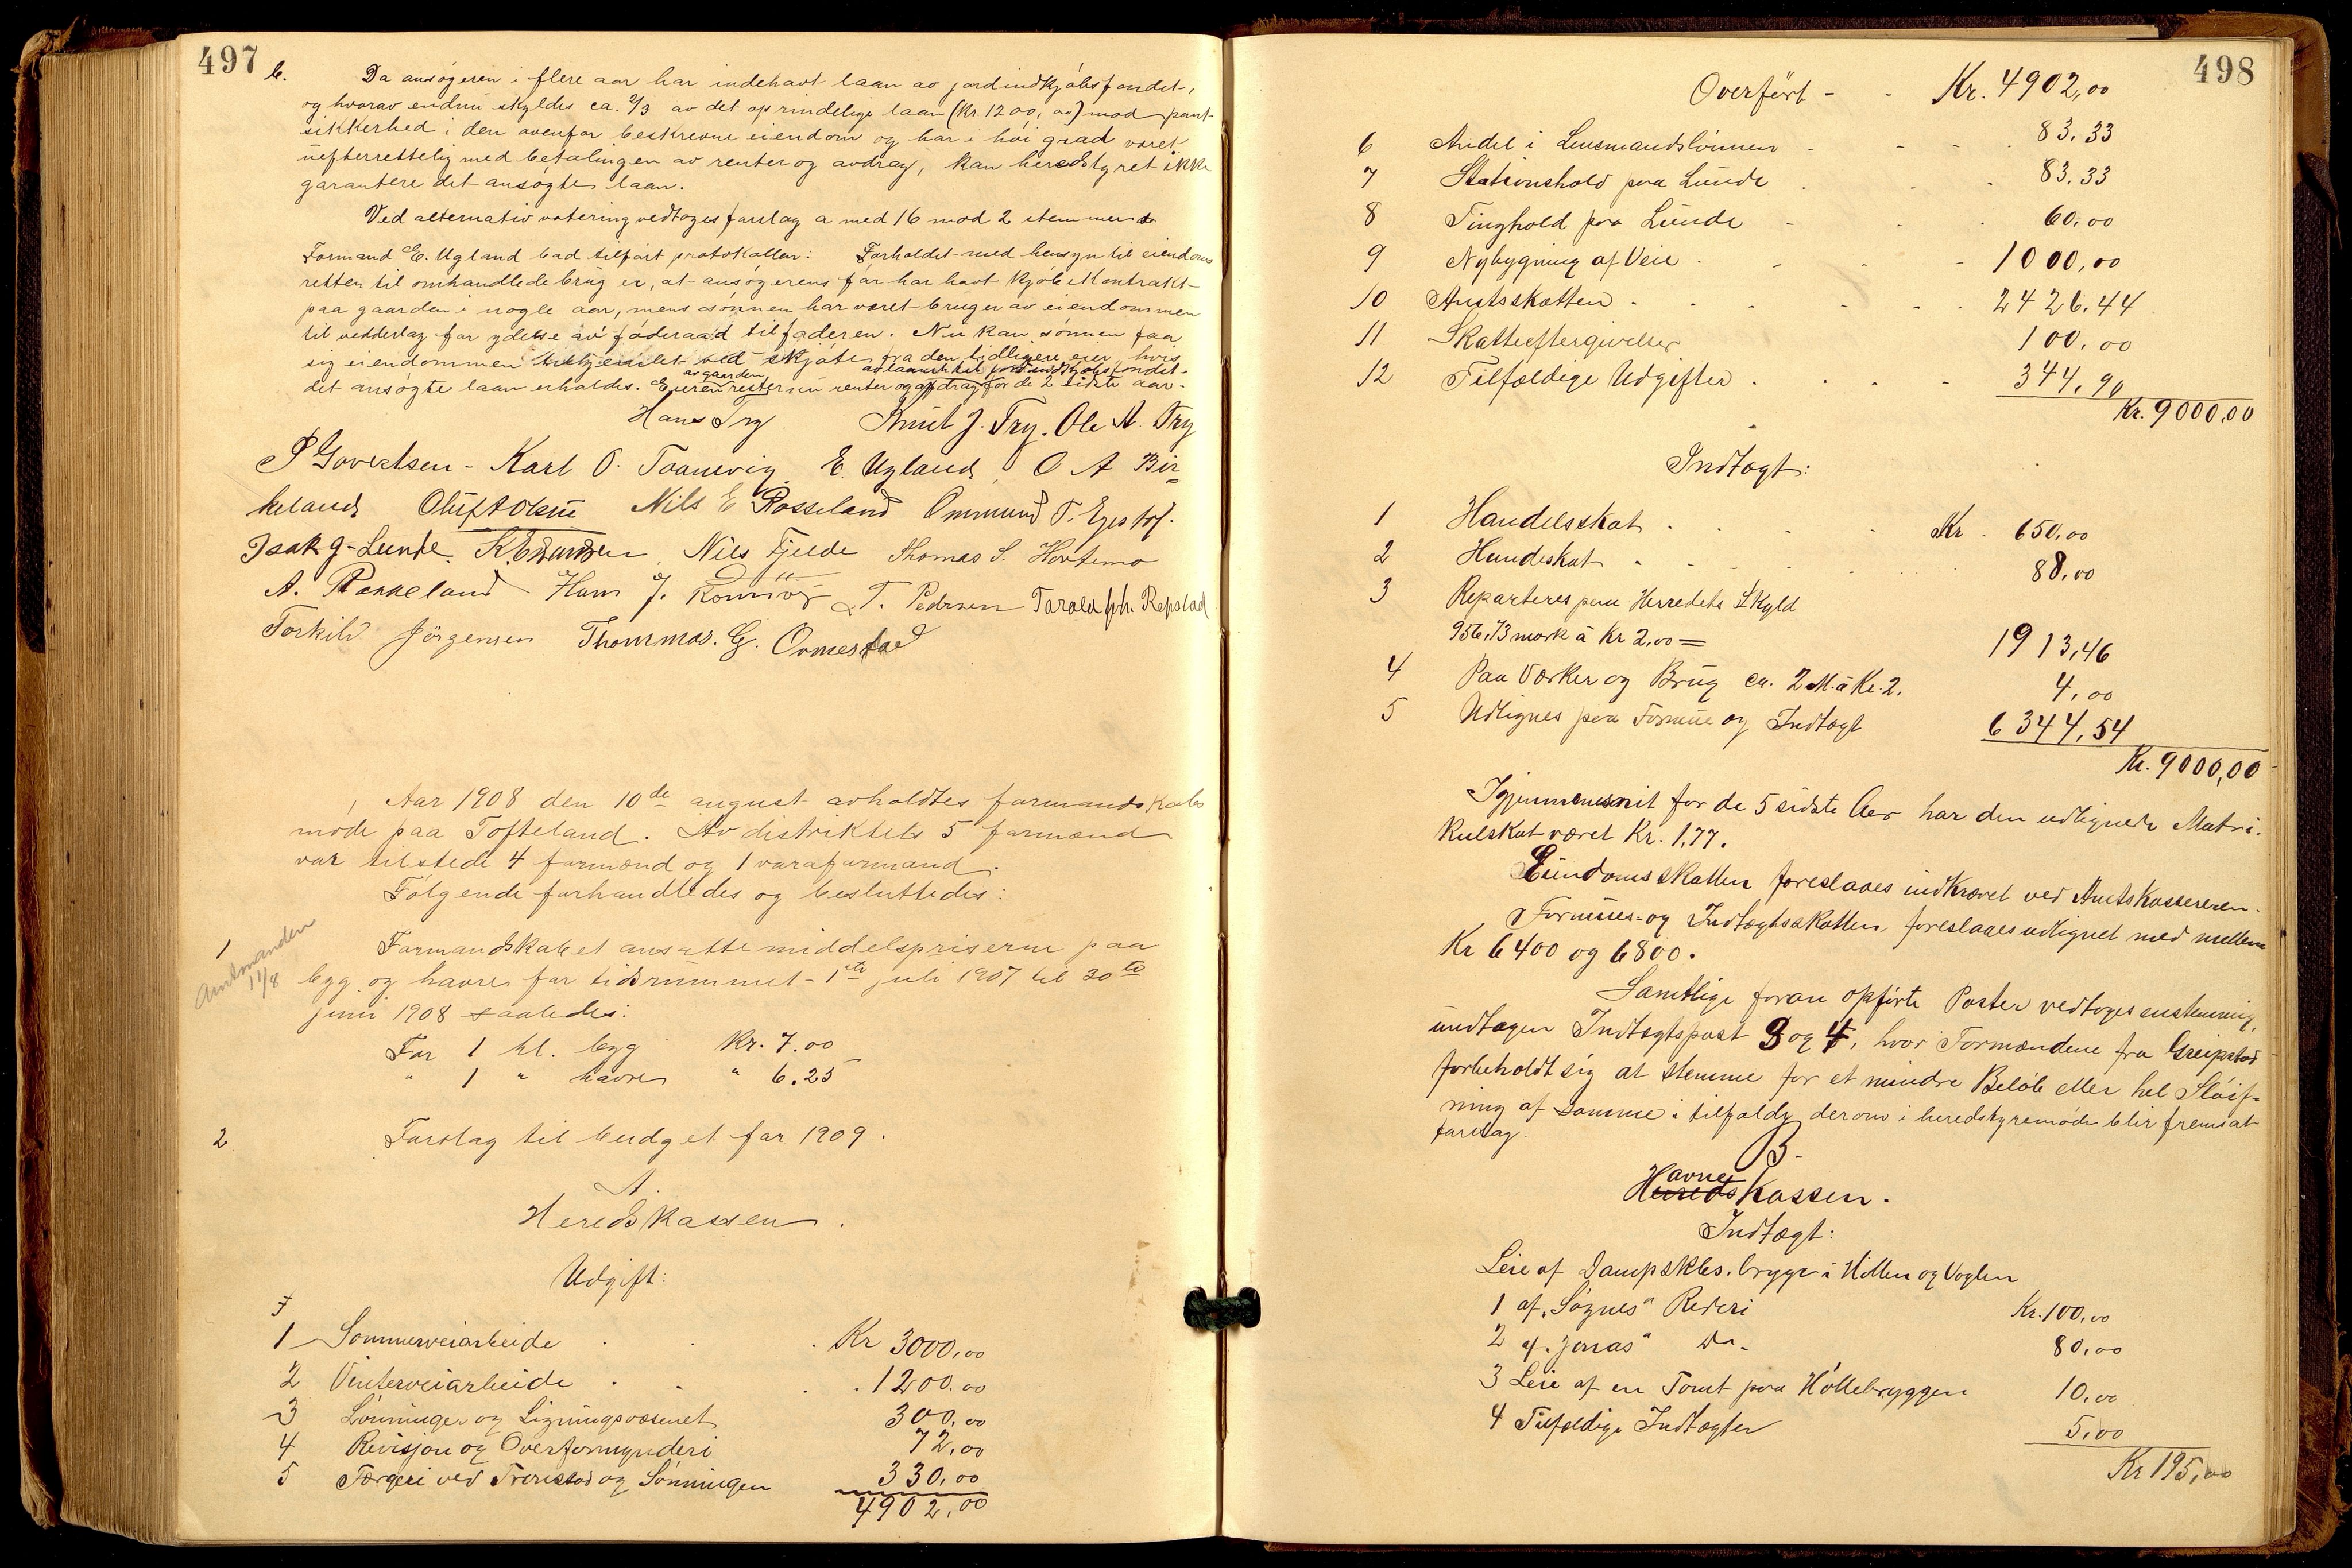 497
b. Da ansøgeren i flere aar har indehavt laan av jordindkjøbsfondet,
og hvorav endnu skyldes ca. 2/3 av det oprindelige laan (Kr. 1200,00) mod pant-
sikkerhed i den ovenfor beskrevne eiendom og har i høi grad været
uefterrettelig med betalingen av renter og avdrag, kan heredstyret ikke
garantere det ansøgte laan.
Ved alternativ votering vedtoges forslag a med 16 mod 2 stemmer
Formand E. Ugland bad tilført protokollen: Forholdet med hensyn til eiendoms
retten til omhandlede brug er, at ansøgerens far har havt kjøbekontrakt
paa gaarden i nogle aar, mens sønnen har været bruger av eiendommen
til vedderlag for ydelse av føderaad til faderen. Nu kan sønnen faa
sig eiendommen ved skjøte fra den tidligere eier, hvis
av gaarden av laanet til jordindkjøbsfondet
det ansøgte laan erholdes. Eieren rester nu renter og avdrag for de 2 sidste aar.
Hans Try Knut J. Try. Ole A. Try
P Govertsen - Karl O. Taanevig E. Ugland O A Bir=
keland Oluf A Olsen Nils E Rosseland Ommund T. Egestøl.
Isak G. Lunde. Nils Fjelde Thomas S. Hortemo
A. Rækeland Hans J. T. Pedersen Tarald Jph. Repstad
Torkild Jörgensen Thommas. G. Ormestad
Aar 1908 den 10de august avholdtes formandskabs
møde paa Tofteland. Av distriktets 5 formænd
var tilstede 4 formænd og 1 varaformand.
Følgende forhandledes og besluttedes:
1 Formandskabet ansatte middelspriserne paa
Amtmanden
11/8
byg og havre for tidsrummet 1ste juli 1907 til 30te
juni 1908 saaledes:
For 1 hl. byg Kr. 7.00
" 1 " havre " 6.25
2 Forslag til budget for 1909.
A.
Heredskassen.
Udgift:
1 Sommerveiarbeide . . Kr 3000,00
2 Vinterveiarbeide . . . 1200.00
3 Lönninger og Ligningsvæsenet 300,00
4 Revisjon og Overformynderi 72,00
5 Færgeri ved og Lönningen 330,00
4902,00
498
Overført - - Kr. 4902,00
6 Andel i Lensmandslönnen - - - 83,33
7 Stationshold paa Lunde . - 83,33
8 Tinghold paa Lunde - - 60,00
9 Nybygning af Veie . - - 1000,00
10 Amtsskatten . . . - - 2426,44
11 Skatteeftergivelser 100,00
12 Tilfældige Udgifter . . . - 344,90
Kr. 9000,00
Indtægt:
1 Handelsskat . . . . Kr. 650,00
2 Hundeskat . - - - 88,00
3 Reparteres paa Herredets Skyld
956,73 mark à Kr 2,00 = 1913,46
4 Paa Værker og Brug ca. 2 M. à Kr. 2. 4,00
5 Udlignes paa Formue og Indtægt 6344,54
Kr. 9000,00
Igjennemsnit for de 5 sidste Aar har den udlignede Matri-
kulskat været Kr. 1,77.
Eiendomsskatten foreslaaes indkrævet ved Amtskassereren.
Formues- og Indtægtsskatten foreslaaes udlignet med mellem
Kr 6400 og 6800.
Samtlige foran opførte Poster vedtoges enstemmig,
undtagen Indtægtspost 3 og 4, hvor Formændene fra Greipstad
forbeholdt sig at stemme for et mindre Beløb eller hel Sløif=
ning af samme i tilfælde derom i heredstyremøde blir fremsat
forslag.
B.
Havne
HeredsKassen.
Indtægt:
Leie af Dampskbs. brygge i Höllen og Vaglen
1 af „Søgnes" Rederi Kr. 100,00
2 af „Jonas" Do. 80,00
3 Leie af en Tomt paa Höllebryggen 10,00
4 Tilfældige Indtægter 5,00
Kr 195,00